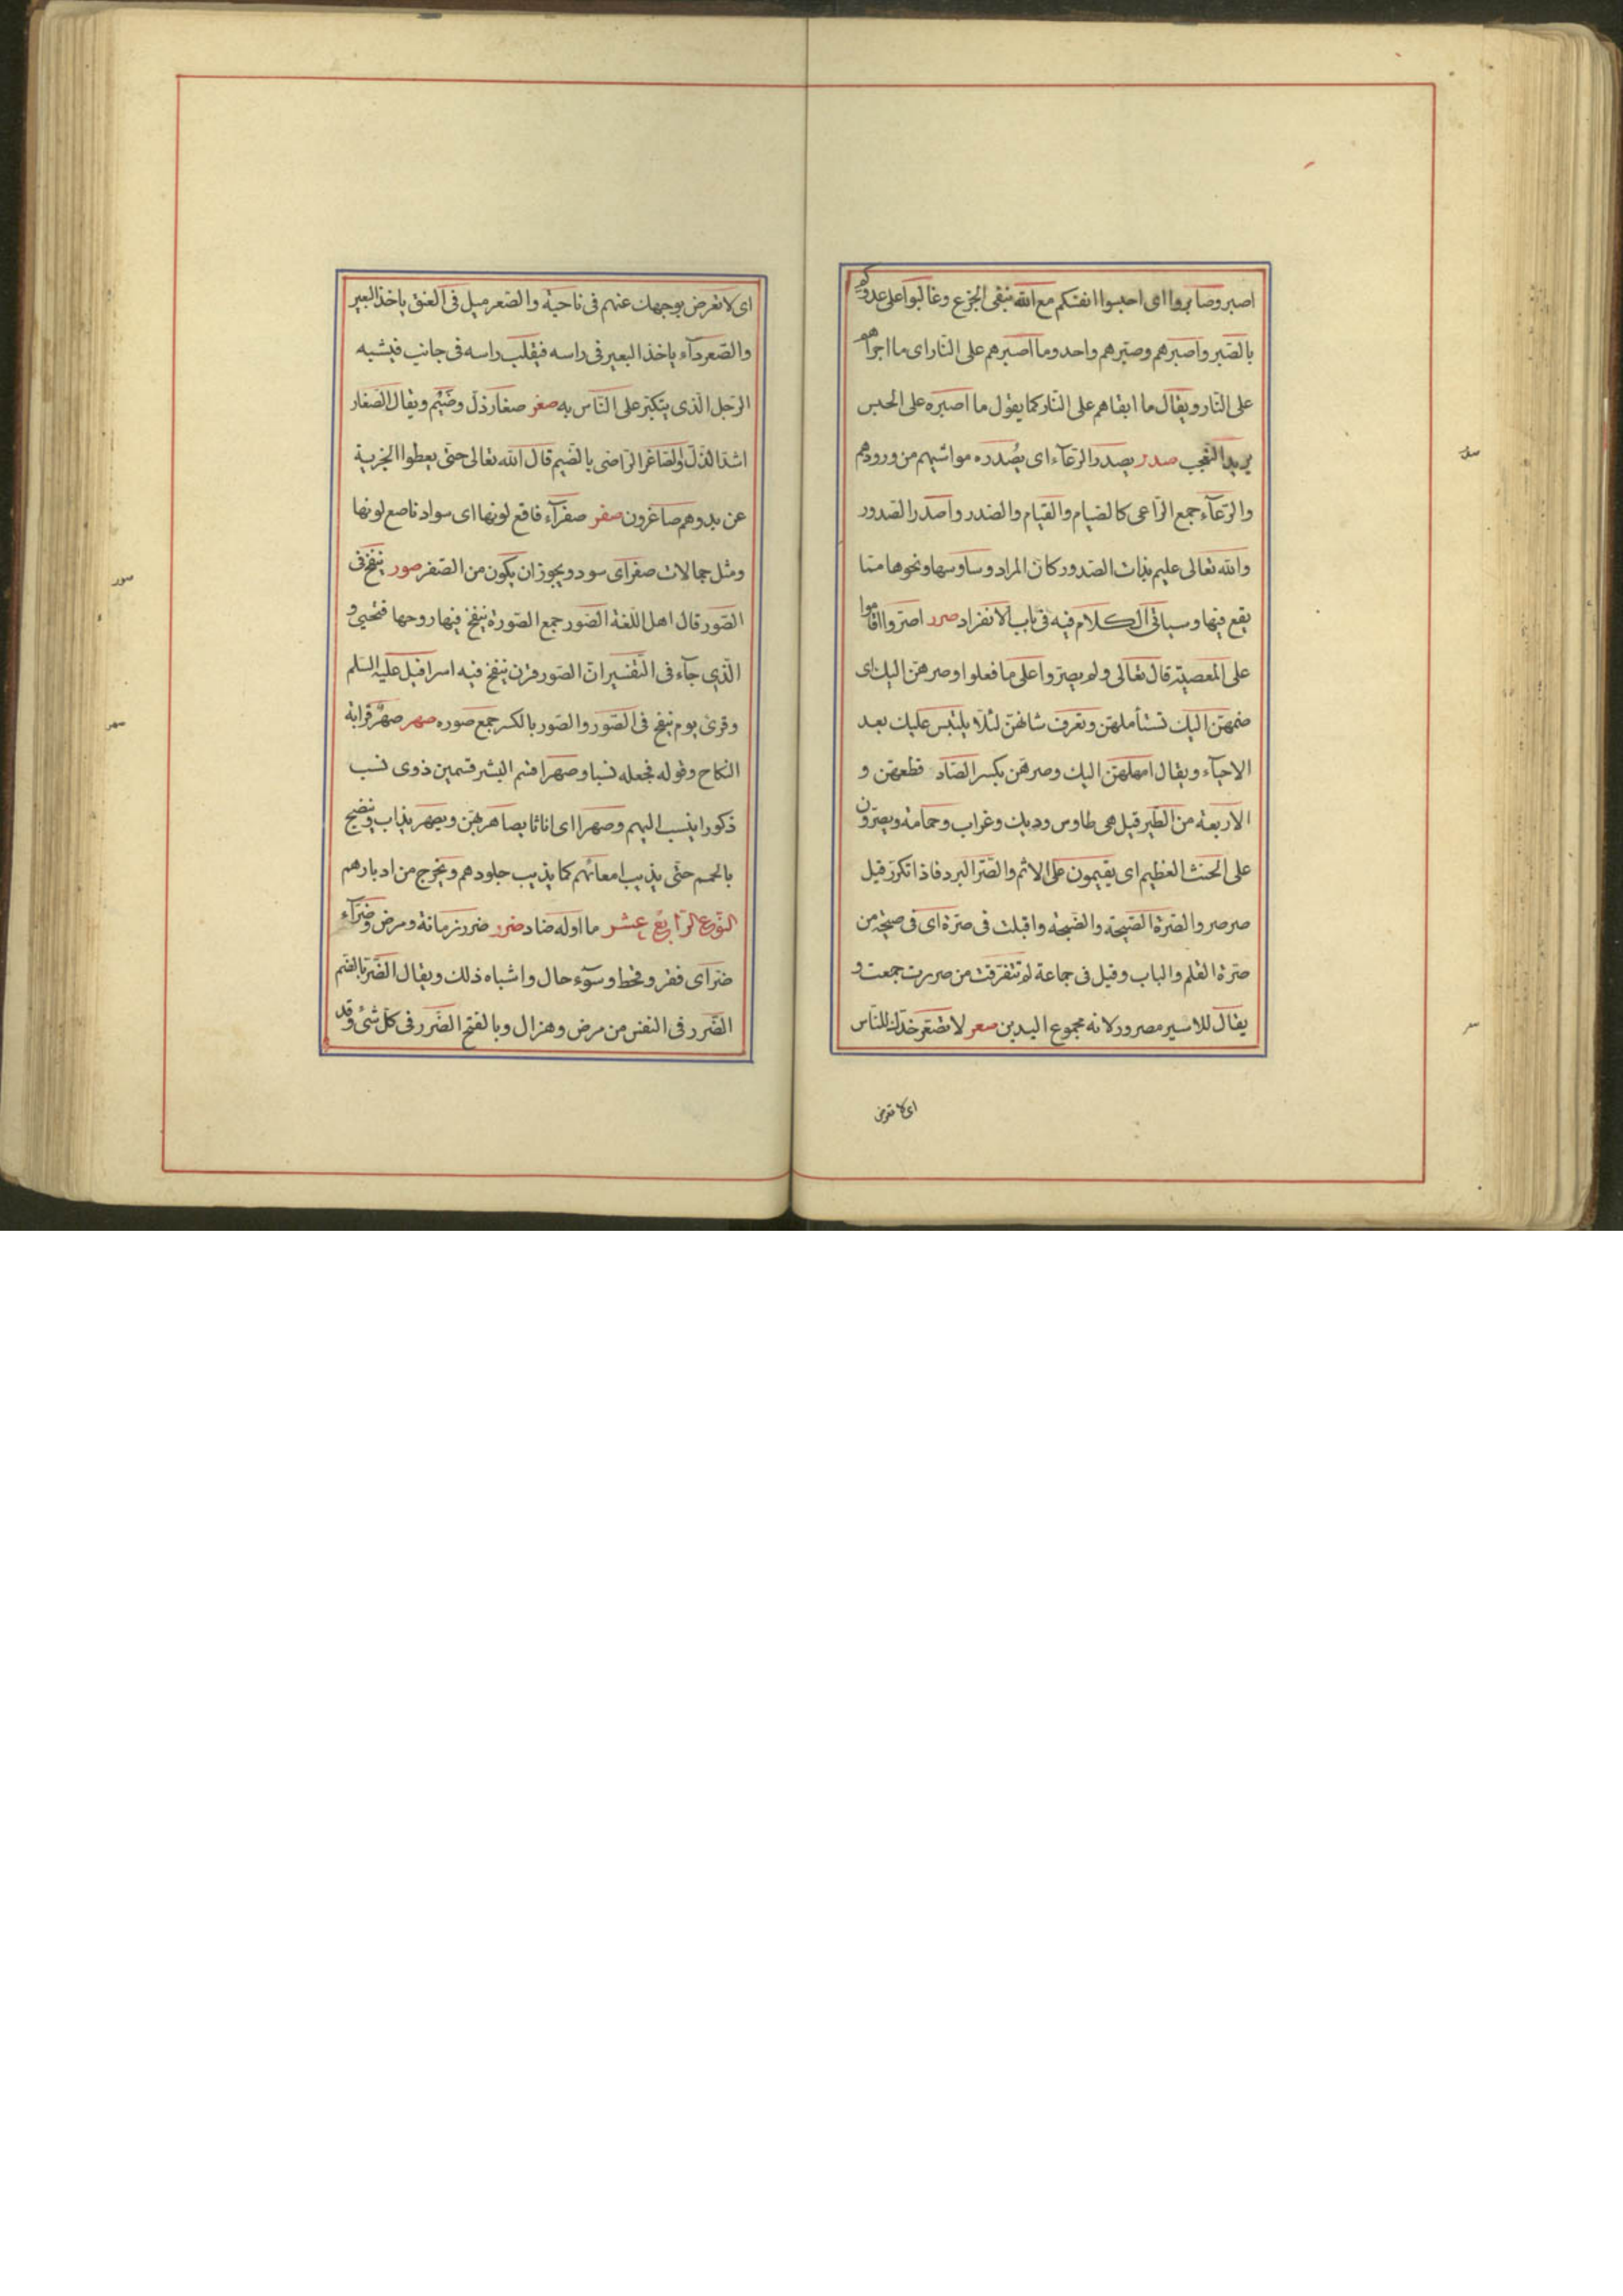 اصبروصابروا اى احبسوا انفسكم مع الله بنفى الجزع وغالبوا على عدوكم
بالصّبر واصبرهم وصبّرهم واحد وما اصبرهم على النار اى ما اجراهم
على النّار ويقال ما ابقاهم على النّار كما يقول ما اصبره على الحبس
يريد التعجب صدر يصدر الرّعآء اى يُصدره مواشيهم من ورودهم
والرّعآء جمع الرّاعى كالصّيام والقيام والصّدر واصدر الصّدور
والله تعالى عليم بذات الصّدور كان المراد وساوسها ونحوها ممّا
يقع فيها وسياتى الكلام فيه فى باب الانفراد صرر اصرّوا اقاموا
على المعصية قال تعالى ولم يصرّوا على ما فعلوا وصرهنّ اليك اى
ضمّهنّ اليك تستأملهنّ وتعرف شانهنّ لئلّا يلتبس عليك بعد
الاحيآء ويقال املهنّ اليك وصرهنّ بكسر الصّاد قطعهنّ و
الاربعة من الطّير قيل هى طاوس وديك وغراب وحمامة ويصرّون
على الحنث العظيم اى يقيمون على الاثم والصّرّ البرد فاذا تكرّر قيل
صرصر والصّرة الصّيحة والضّجة واقبلت فى صرّة اى فى صيحة من
صرّة القلم والباب وقيل فى جماعة لم تتفرّقت من صررت جمعت و
يقال للاسير مصرور لانه مجموع اليدين صعر لا تصعّر خدّك للنّاس
اى لا تعرض
اى لا تعرض بوجهك عنهم فى ناحية والصّعر ميل فى العنق ياخذ البعير
والصّعر دآء ياخذ البعير فى راسه فيقلب راسه فى جانب فيشبه
الرّجل الّذى يتكبّر على النّاس به صغر صغار ذلّ وضَيْم ويقال الصّغار
اشدّ الذّلّ والصّاغر الرّاضى بالضّيم قال الله تعالى حتى يعطوا الجزية
عن يد وهم صاغرون صفر صفرآء فاقع لونها اى سواد ناصع لونها
ومثل جمالات صفر اى سود ويجوز ان يكون من الصّفر صور ينفخ فى
الصّور قال اهل اللّغة الصّور جمع الصّورة ينفخ فيها روحها فتحيى و
الّذى جآء فى التّفسير انّ الصّور قرن ينفخ فيه اسرافيل عليه السّلم
وقرئ يوم ينفخ فى الصّور والصّور بالكسر جمع صوره صهر صهرٌ قرابة
النكاح وقوله فجعله نسبا وصهرا قسم البشر قسمين ذوى نسب
ذكورا ينسب اليهم وصهرا اى اناثا يصاهر بهنّ ويصهر يذاب وينضج
بالحميم حتّى يذيب امعائهم كما يذيب جلودهم ويخرج من ادبارهم
النّوع الرّابع عشر ما اوله ضاد ضرر ضرر زمانة ومرض وضرّآء
ضرّ اى فقر وقحط وسوٓء حال واشباه ذلك ويقال الضّرّ بالضّم
الضّرر فى النفس من مرض وهزال وبالفتح الضّرر فى كلّ شئ وقد
صور
صهر